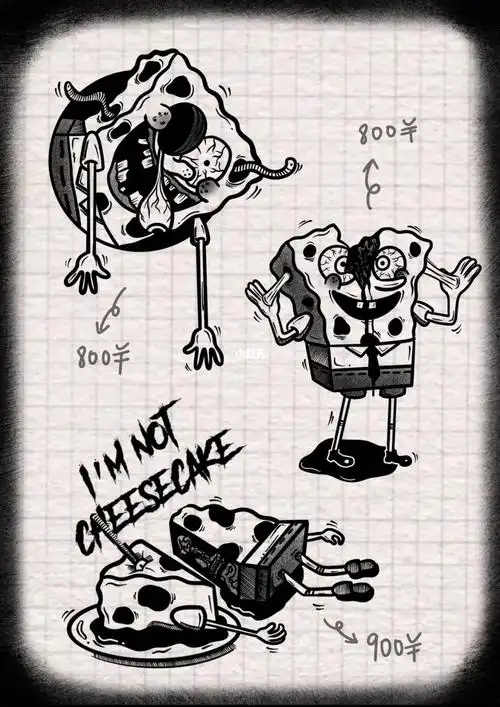 800¥
800¥
小红书
I'M NOT
CHEESECAKE
900¥